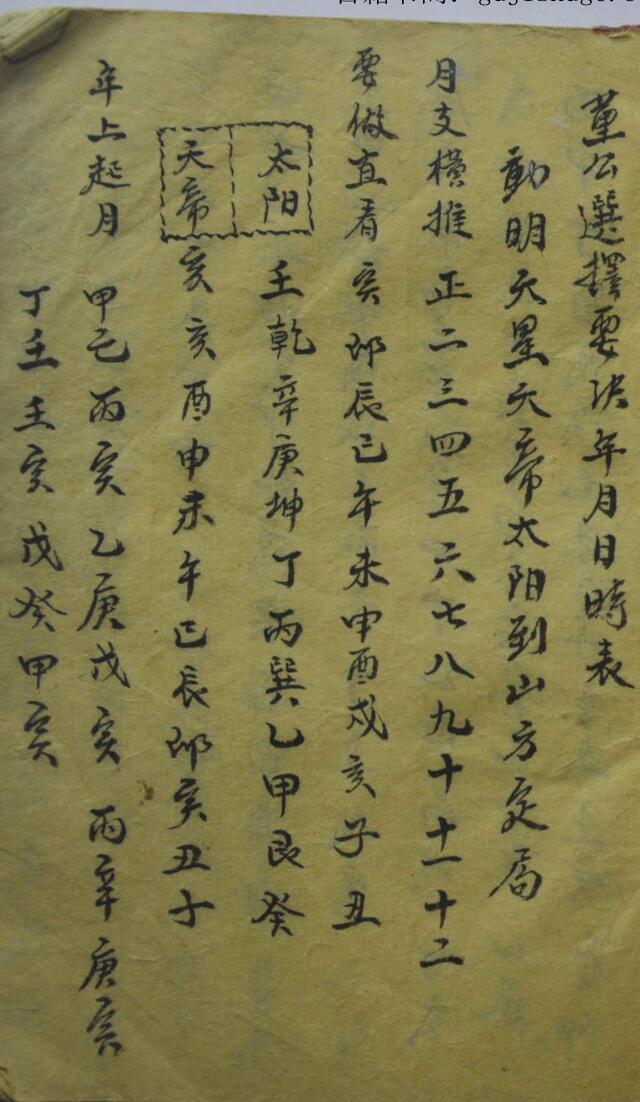 董公選擇要决年月日時表
動明天星天帝太阳到山方定局
月支橫推 正二三四五六七八九十十一十二
要做直看 寅卯辰巳午未申酉戌亥子丑
太阳 壬乾辛庚坤丁丙巽乙甲艮癸
天帝 亥亥酉申未午巳辰卯寅丑子
年上起月 甲己丙寅 乙庚戊寅 丙辛庚寅
丁壬壬寅 戊癸甲寅